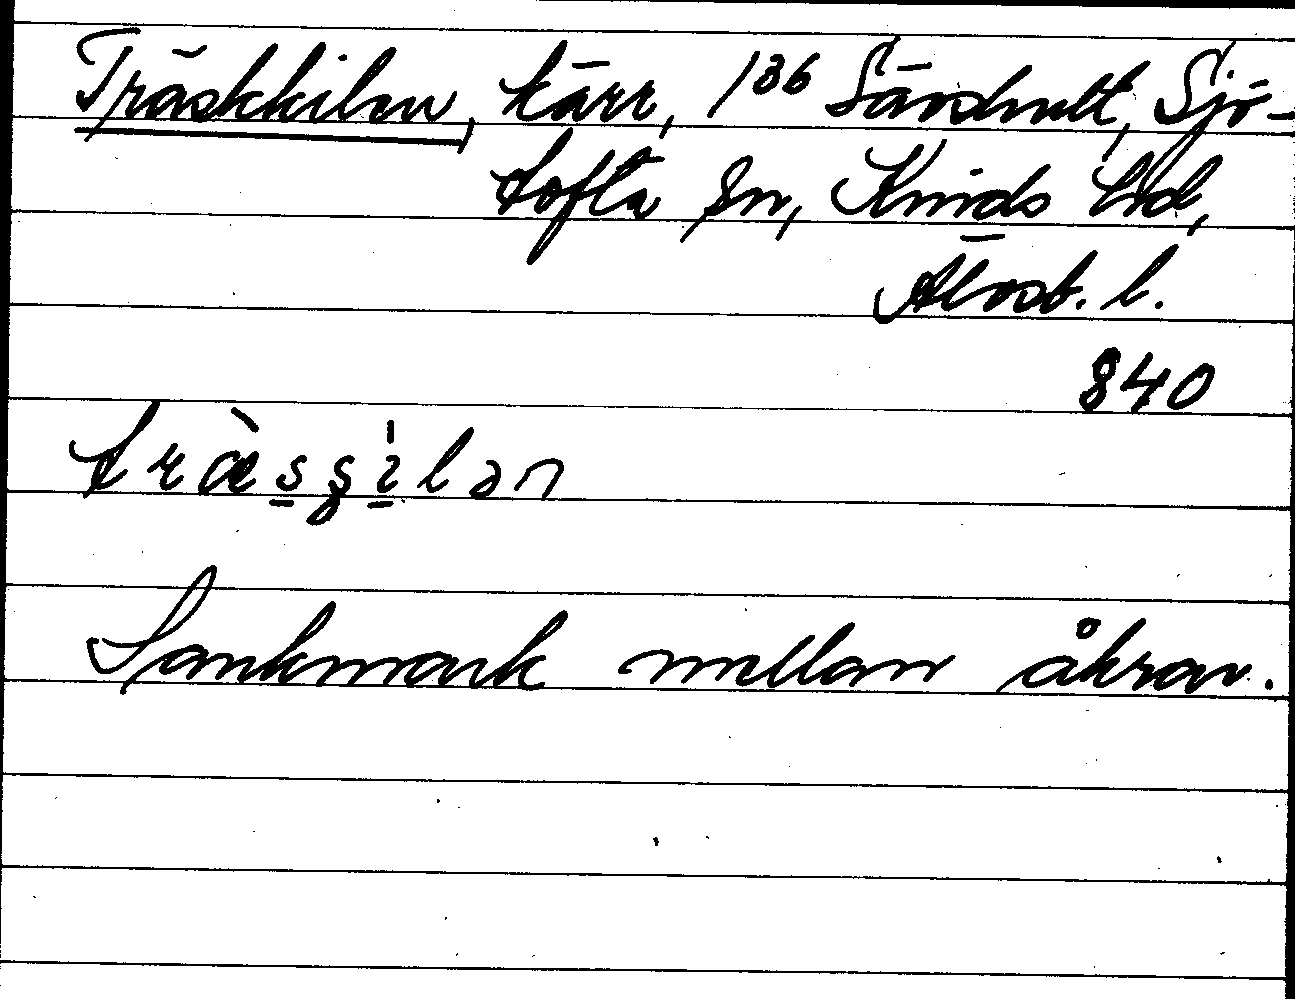 Träskkilen, kärr, 1³⁶ Sävshult, Sjö-
tofta sn, Kinds hd,
Älvsb. l.
840
Sankmark mellan åkrar.